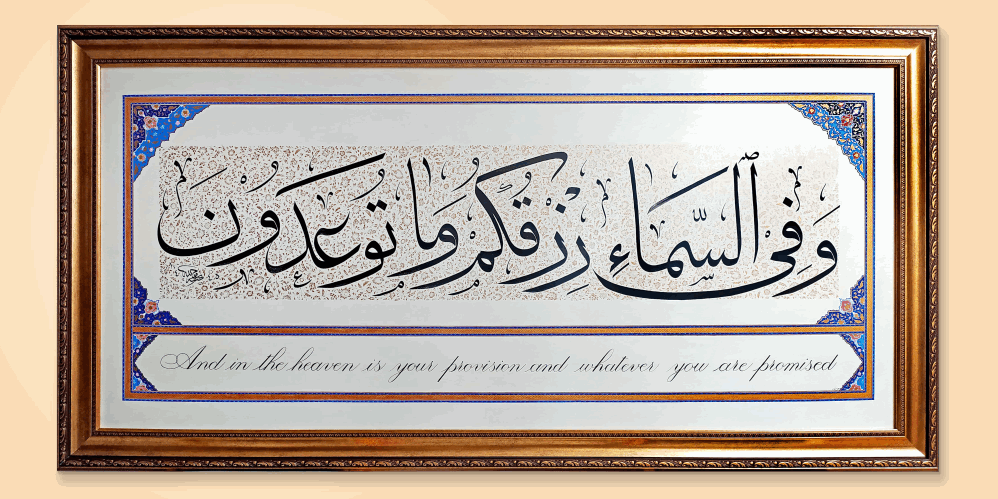 وَفِي ٱلسَّمَاءِ رِزْقُكُمْ وَمَا تُوعَدُونَ
And in the heaven is your provision and whatever you are promised